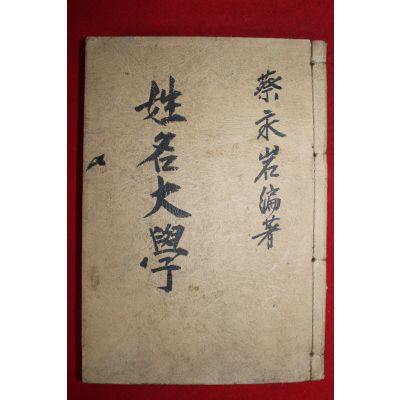 蔡永岩編著
姓名大學